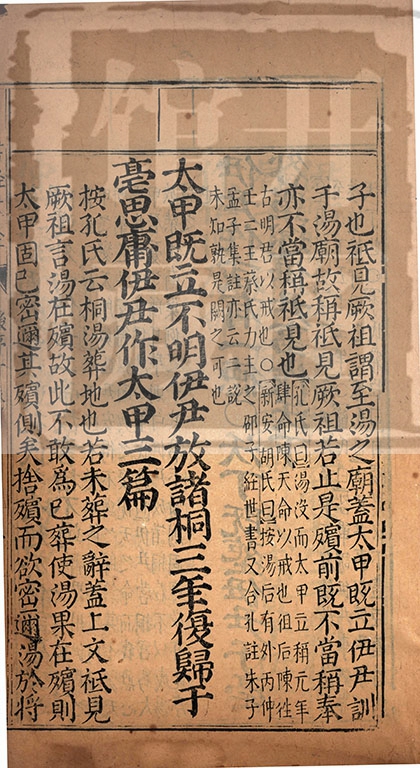 子也祗見厥祖謂至湯之廟蓋太甲既立伊尹訓
于湯廟故稱祗見厥祖若止是殯前既不當稱奉
亦不當稱祗見也
孔氏曰湯沒而太甲立稱元年
肆命陳天命以戒也徂后陳徃
古明君以戒也○新安胡氏曰按湯后有外丙仲
壬二王蔡氏力主之邵子経世書又合孔註朱子
孟子集註亦云二說
未知孰是闕之可也
太甲既立不明伊尹放諸桐三年復歸于
亳思庸伊尹作太甲三篇
按孔氏云桐湯葬地也若未葬之辭蓋上文祗見
厥祖言湯在殯故此不敢為已葬使湯果在殯則
太甲固已密邇其殯側矣捨殯而欲密邇湯於將